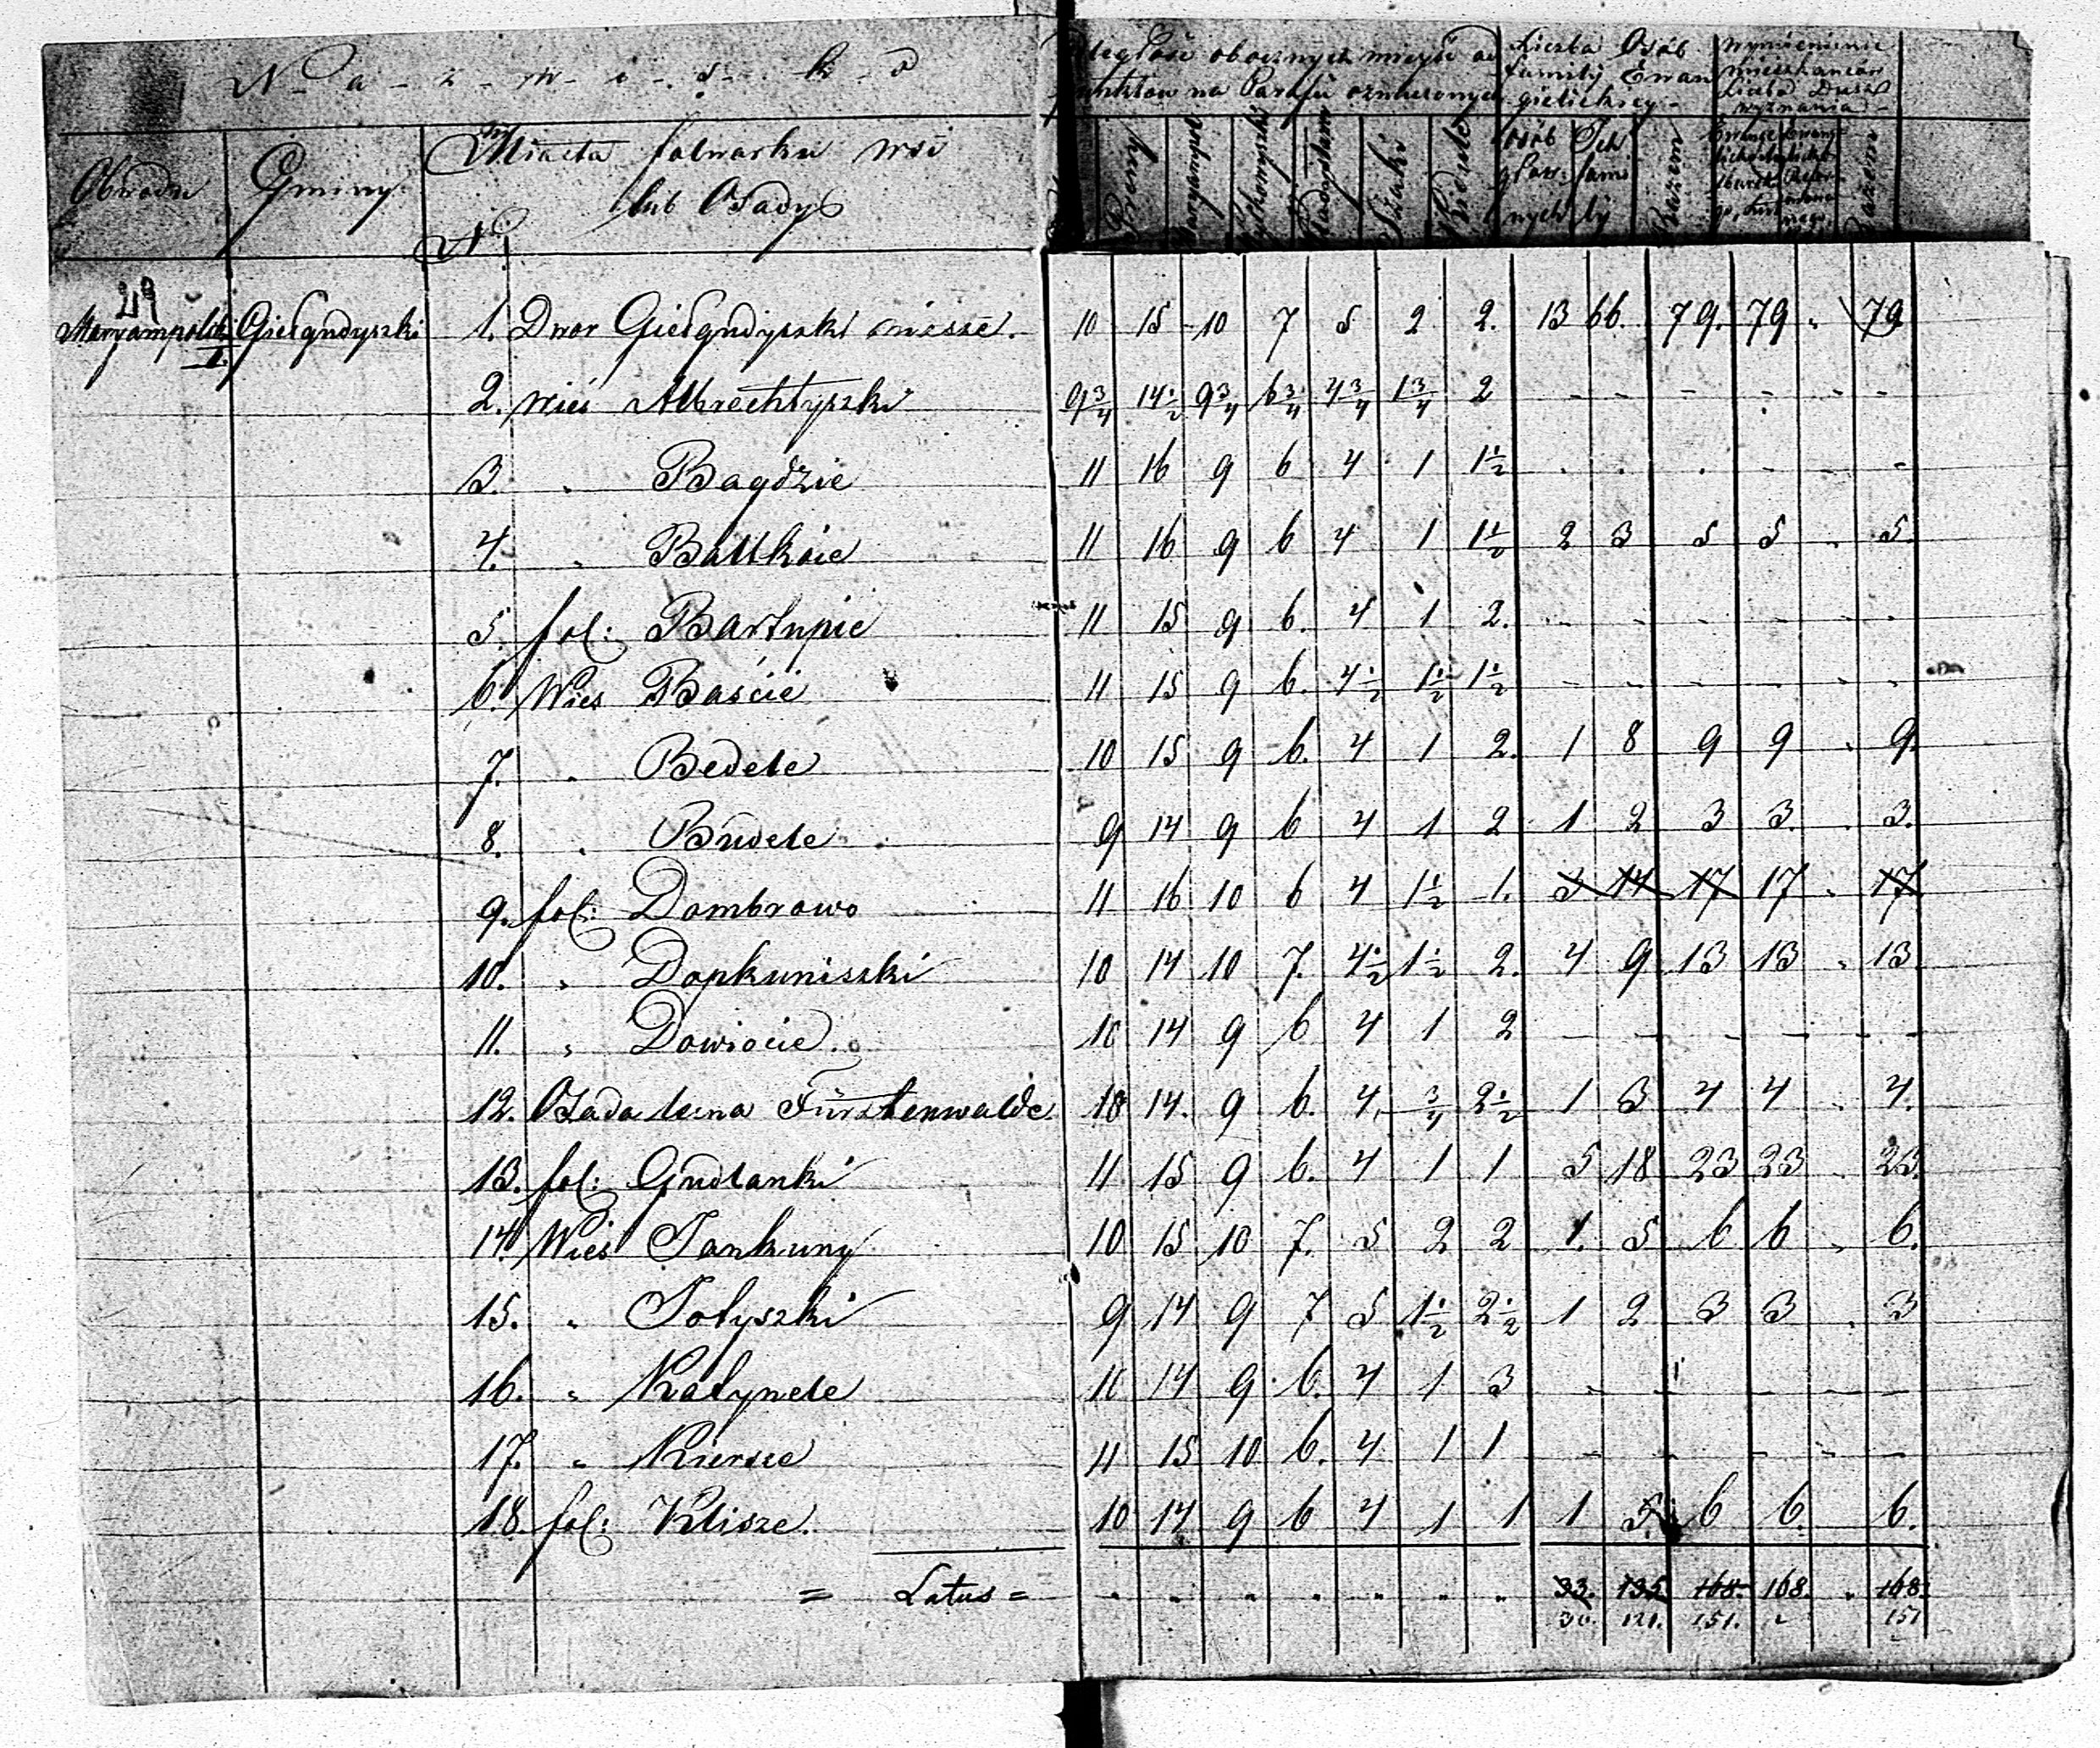 N - a - z - w - i - s - k - o
Odległość obocznych mieyść od
punktów na Parafii oznaczonych
Liczba Osób
familij Ewan
gielickiey
Wymienienie
mieszkańców
Liczba Dusz
wyznania
Obwodu
Gminy
Miasta folwarku wsi
lub Osady
No
Pilwiszki
Preny
Maryampol
Władysławow
Szaki
Kidule
Osób
głow:
nych
Ich
fami
lij
Razem
Razem
49
Maryampolski Giełgudyszki 1. Dwor Giełgudyszki niższe. 10 15 10 7 5 2 2. 13 66. 79. 79 " 79
2. wieś Albrechtyszki 9 3/4 14 1/2 9 3/4 6 3/4 4 3/4 1 3/4 2 - - - - - -
3. " Bagdzie 11 16 9 6 4 1 1 1/2 - - - - - -
4. " Baltkoie 11 16 9 6 4 1 1 1/2 2 3 5 5 " 5.
5. fol: Bartupie 11 15 9 6. 4 1 2. - - - - - -
6. Wies Baście 11 15 9 6. 4 1/2 1 1/2 1 1/2 - - - - - -
7. " Bedele 10 15 9 6. 4 1 2. 1 8 9 9 " 9.
8. " Budele 9 14 9 6 4 1 2 1 2 3 3. " 3.
9. fol: Dombrowo 11 16 10 6 4 1 1/2 1. 3 14 17 17 " 17
10. " Dopkuniszki 10 14 10 7. 4 1/2 1 1/2 2. 4 9 13 13 " 13
11. " Dowiocie 10 14 9 6 4 1 2 - - - - - -
12. Osada leśna Fürstenwalde 10 14. 9 6. 4. 3/4 2 1/2 1 3 4 4 " 4.
13. fol: Gudlanki 11 15 9 6. 4 1 1 5 18 23 23 " 23.
14. Wies Jankuny 10 15 10 7. 5 2 2 1. 5 6 6 " 6.
15. " Jotyszki 9 14 9 7 5 1 1/2 2 1/2 1 2 3 3 " 3
16. " Katynele 10 14 9 6. 4 1 3 - - - - - -
17. " Kiersze 11 15 10 6. 4 1 1 - - - - - -
18. fol: Klisze. 10 14 9 6 4 1 1 1 5. 6 6. " 6.
= Latus = " " " " " " " 33. 135 168. 168. " 168.
30. 121. 151. " 151